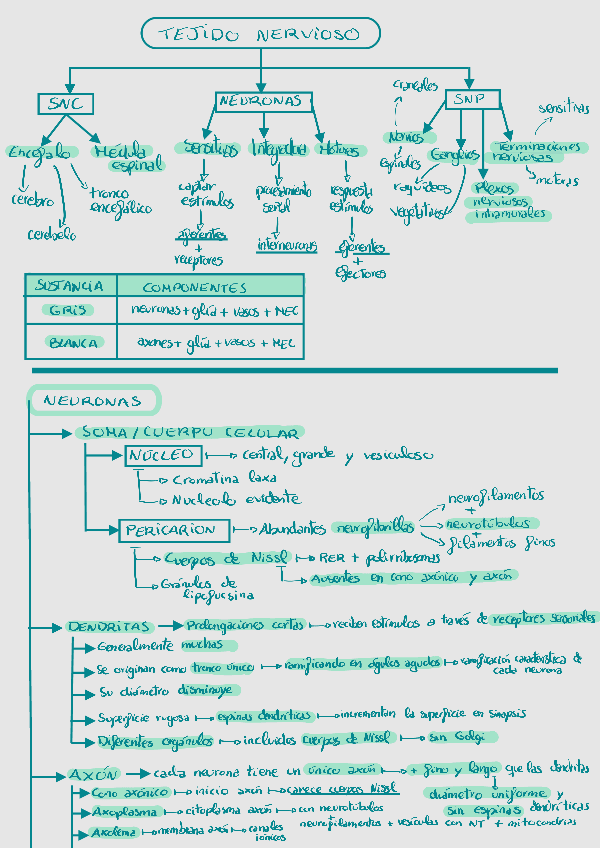 TEJIDO NERVIOSO
SNC
NEURONAS
SNP
craneales
sensitivas
Encéfalo
Médula espinal
Sensitivas
Integradoras
Motoras
Nervios
Ganglios
Terminaciones nerviosas
cerebro
cerebelo
tronco encefálico
captar estímulos
procesamiento señal
respuesta estímulos
espinales
raquídeos
vegetativos
Plexos nerviosos intramurales
motoras
aferentes + receptores
interneuronas
eferentes + efectores
SUSTANCIA COMPONENTES
GRIS neuronas + glía + vasos + MEC
BLANCA axones + glía + vasos + MEC
NEURONAS
SOMA/CUERPO CELULAR
NÚCLEO central, grande y vesiculoso
Cromatina laxa
Nucleolo evidente
PERICARION Abundantes neurofibrillas
neurofilamentos
+
neurotúbulos
+
filamentos finos
Cuerpos de Nissl RER + polirribosomas
Ausentes en cono axónico y axón
Gránulos de lipofucsina
DENDRITAS Prolongaciones cortas reciben estímulos a través de receptores sensoriales
Generalmente muchas
Se originan como tronco único ramificando en ángulos agudos ramificación característica de cada neurona
Su diámetro disminuye
Superficie rugosa espinas dendríticas incrementan la superficie en sinapsis
Diferentes orgánulos incluidos cuerpos de Nissl sin Golgi
AXÓN cada neurona tiene un único axón + fino y largo que las dendritas
Cono axónico inicio axón carece cuerpos Nissl diámetro uniforme y
Axoplasma citoplasma axón con neurotúbulos sin espinas dendríticas
Axolema membrana axón canales iónicos neurofilamentos + vesículas con NT + mitocondrias